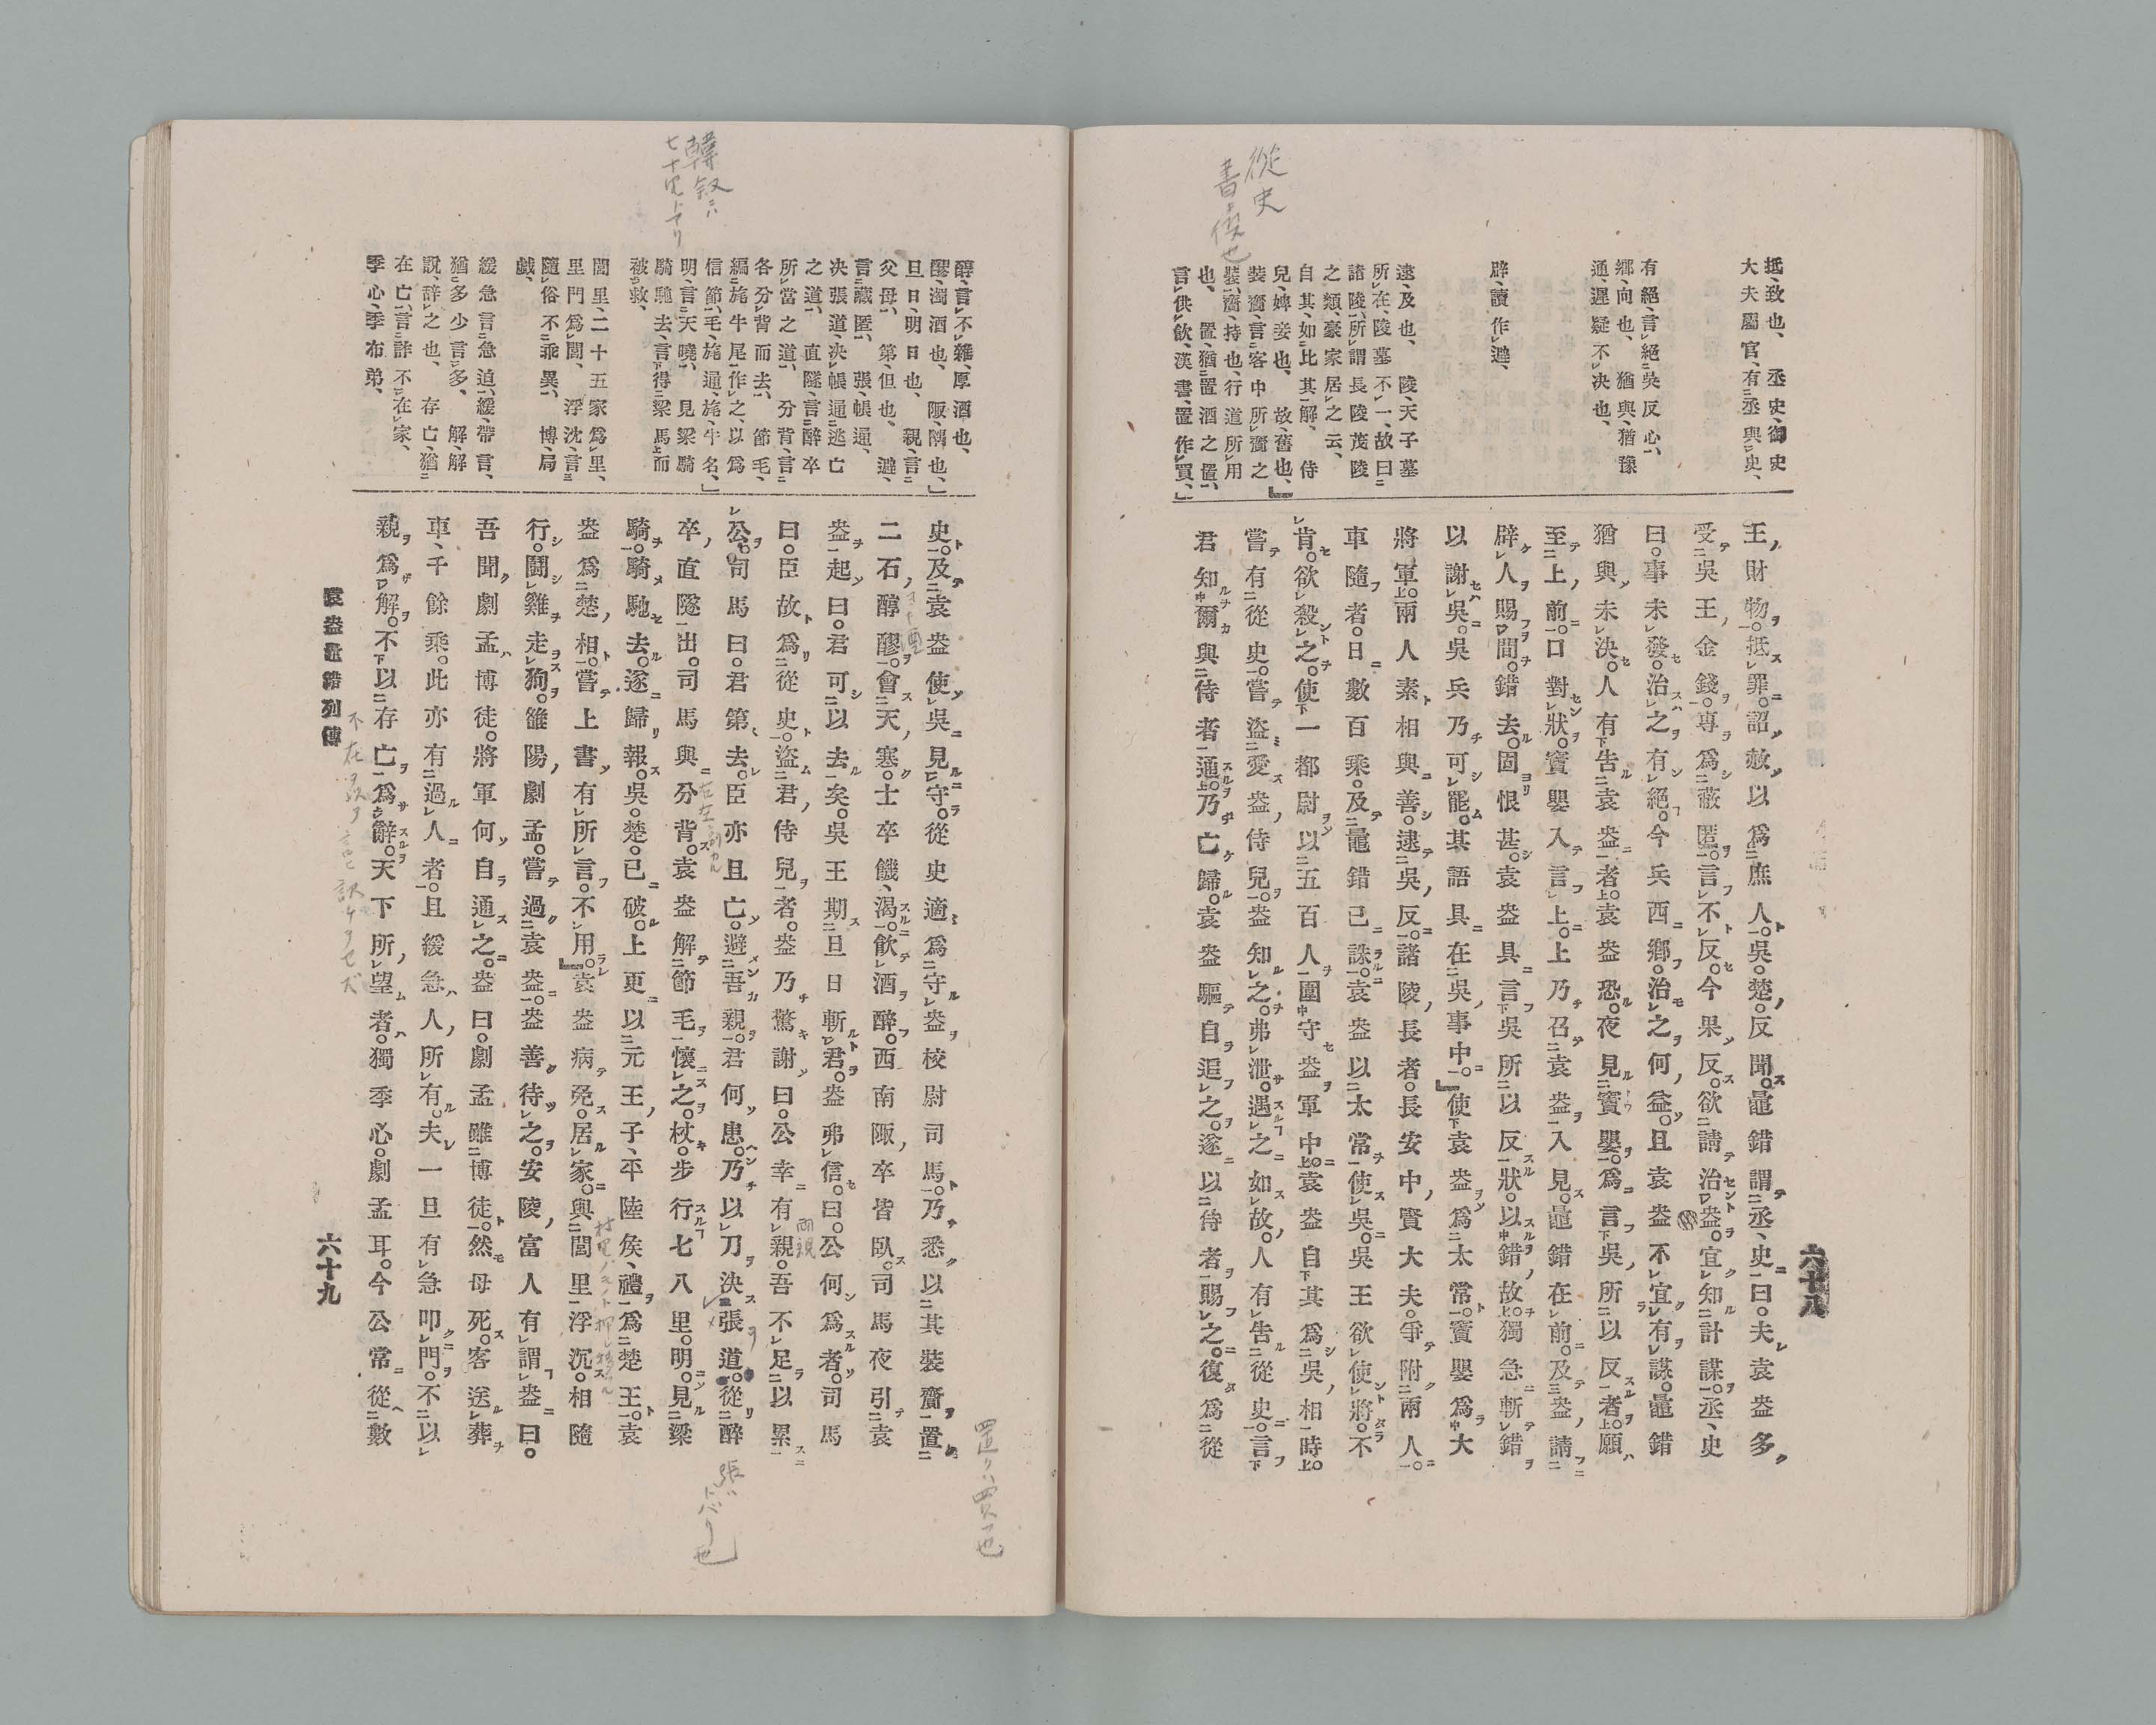 六十八
抵、致也、 丞史、御史
大夫屬官、有丞與史、
有絕、言絕吳反心、
鄉、向也、 猶與、猶豫
通、遲疑不決也、
辟、讀作避、
逮、及也、 陵、天子墓
所在、陵墓不一、故曰
諸陵、所謂長陵茂陵
之類、豪家居之云、
自其、如比其解、 侍
兒、婢妾也、 故、舊也、」
裝齎、言客中所齎之
裝、齎、持也、行道所用
也、 置、猶置酒之置、
言供飲、漢書、置作買、」
王財物。抵罪。詔赦以爲庶人。吳。楚。反聞。鼂錯謂丞、史曰。夫袁盎多
受吳王金錢。專爲蔽匿。言不反。今果反。欲請治盎。宜知計謀。丞、史
曰。事未發。治之有絕。今兵西鄉。治之何益。且袁盎不宜有謀。鼂錯
猶與未決。人有吿袁盎者。袁盎恐。夜見竇嬰。爲言吳所以反者。願
至上前。口對狀。竇嬰入言上。上乃召袁盎入見。鼂錯在前。及盎請
辟人賜間。錯去。固恨甚。袁盎具言吳所以反狀。以錯故。獨急斬錯
以謝吳。吳兵乃可罷。其語具在吳事中。」使袁盎爲太常。竇嬰爲大
將軍。兩人素相與善。逮吳反。諸陵長者。長安中賢大夫。爭附兩人。
車隨者。日數百乘。及鼂錯已誅。袁盎以太常使吳。吳王欲使將。不
肯。欲殺之。使一都尉以五百人圍守盎軍中。袁盎自其爲吳相時。
嘗有從史。嘗盜愛盎侍兒。盎知之。弗泄。遇之如故。人有吿從史。言
君知爾與侍者通。乃亡歸。袁盎驅自追之。遂以侍者賜之。復爲從
從史
書キ役也
醇、言不雜、厚酒也、
醪、濁酒也、 陬、隅也、」
旦日、明日也、 親、言
父母、 第、但也、 避、
言藏匿、 張、帳通、
決張道、決帳通逃亡
之道、 直隧、言醉卒
所當之道、 分背、言
各分背而去、 節毛、
編旄牛尾作之、以爲
信節、毛、旄通、旄、牛名、」
明、言天曉、 見梁騎
騎馳去、言得梁馬而
被救、
閭里、二十五家爲里、
里門爲閭、 浮沈、言
隨俗不乖異、 博、局
戲、
緩急言急迫、緩、帶言、
猶多少言多、 解、解
說、辭之也、 存亡、猶
在亡、言詐不在家、
季心、季布弟、
史。及袁盎使吳見守。從史適爲守盎校尉司馬。乃悉以其裝齎置
二石醇醪。會天寒。士卒饑、渴。飮酒醉。西南陬卒皆臥。司馬夜引袁
盎起曰。君可以去矣。吳王期旦日斬君。盎弗信。曰。公何爲者。司馬
曰。臣故爲從史。盜君侍兒者。盎乃驚謝曰。公幸有親。吾不足以累
公。司馬曰。君第去。臣亦且亡。避吾親。君何患。乃以刀決張道。從醉
卒直隧出。司馬與分背。袁盎解節毛懷之。杖。步行七八里。明。見梁
騎。騎馳去。遂歸報。吳。楚。已破。上更以元王子、平陸侯、禮爲楚王。袁
盎爲楚相。嘗上書有所言。不用。」袁盎病免。居家。與閭里浮沉。相隨
行。鬪雞走狗。雒陽劇孟。嘗過袁盎。盎善待之。安陵富人有謂盎曰。
吾聞劇孟博徒。將軍何自通之。盎曰。劇孟雖博徒。然母死。客送葬
車、千餘乘。此亦有過人者。且緩急人所有。夫一旦有急叩門。不以
親爲解。不以存亡爲辭。天下所望者。獨季心。劇孟耳。今公常從數
袁盎鼂錯列傳
六十九
置ハ買也
張ハトバリ也
兩親